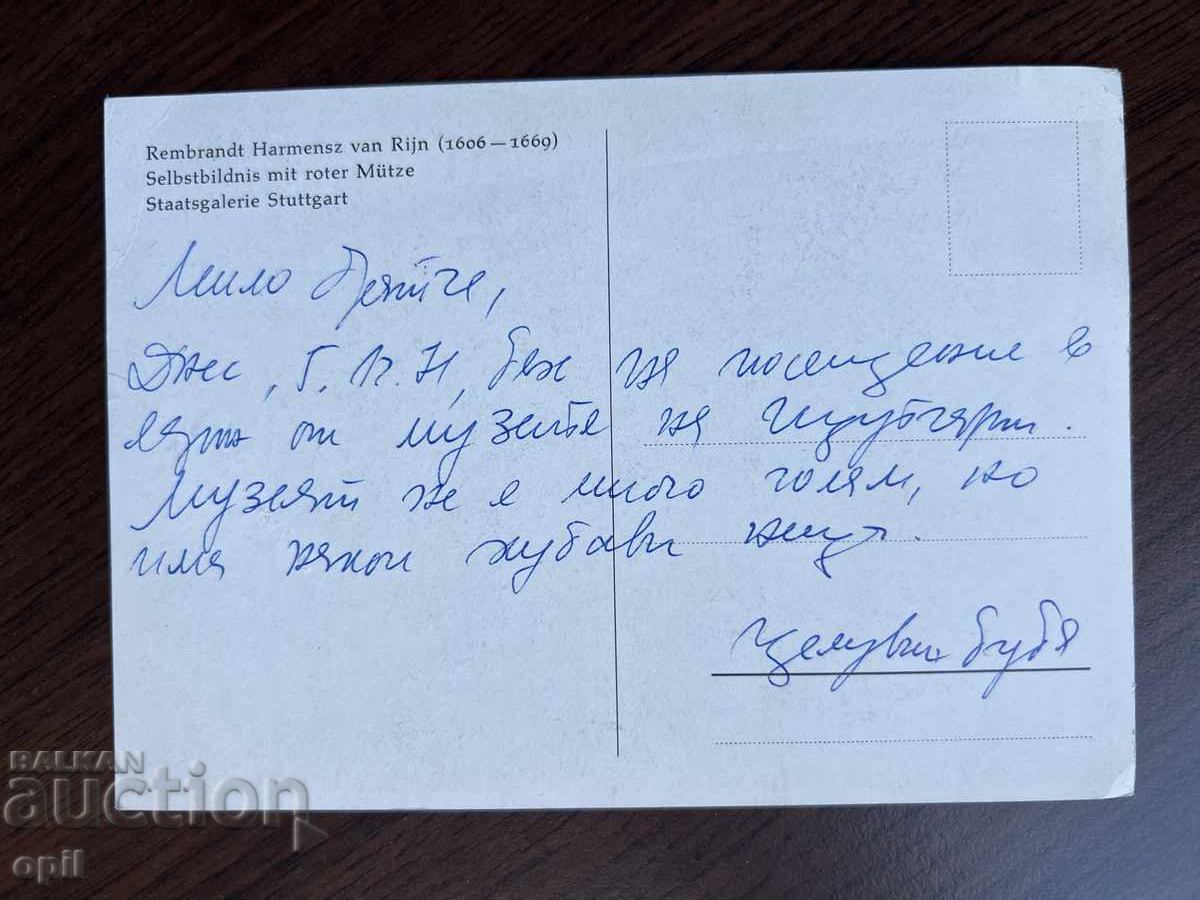 Rembrandt Harmensz van Rijn (1606—1669)
Selbstbildnis mit roter Mütze
Staatsgalerie Stuttgart
Мило
Днес, бях на посещение в
един от музеите на Щутгарт.
Музеят не е много голям, но
има някои хубави неща.
Целувки
BALKAN
auction
opil